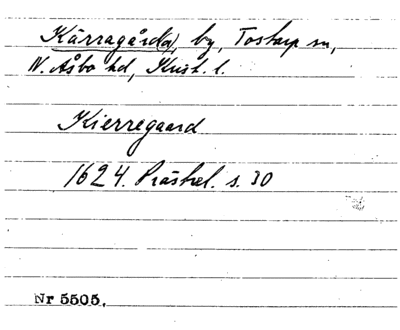 Kärragård(a), by, Tostarp sn,
N. Åsbo hd, Krist. l.
Kierregaard
1624. Prästrel. s. 30
Nr 5505.